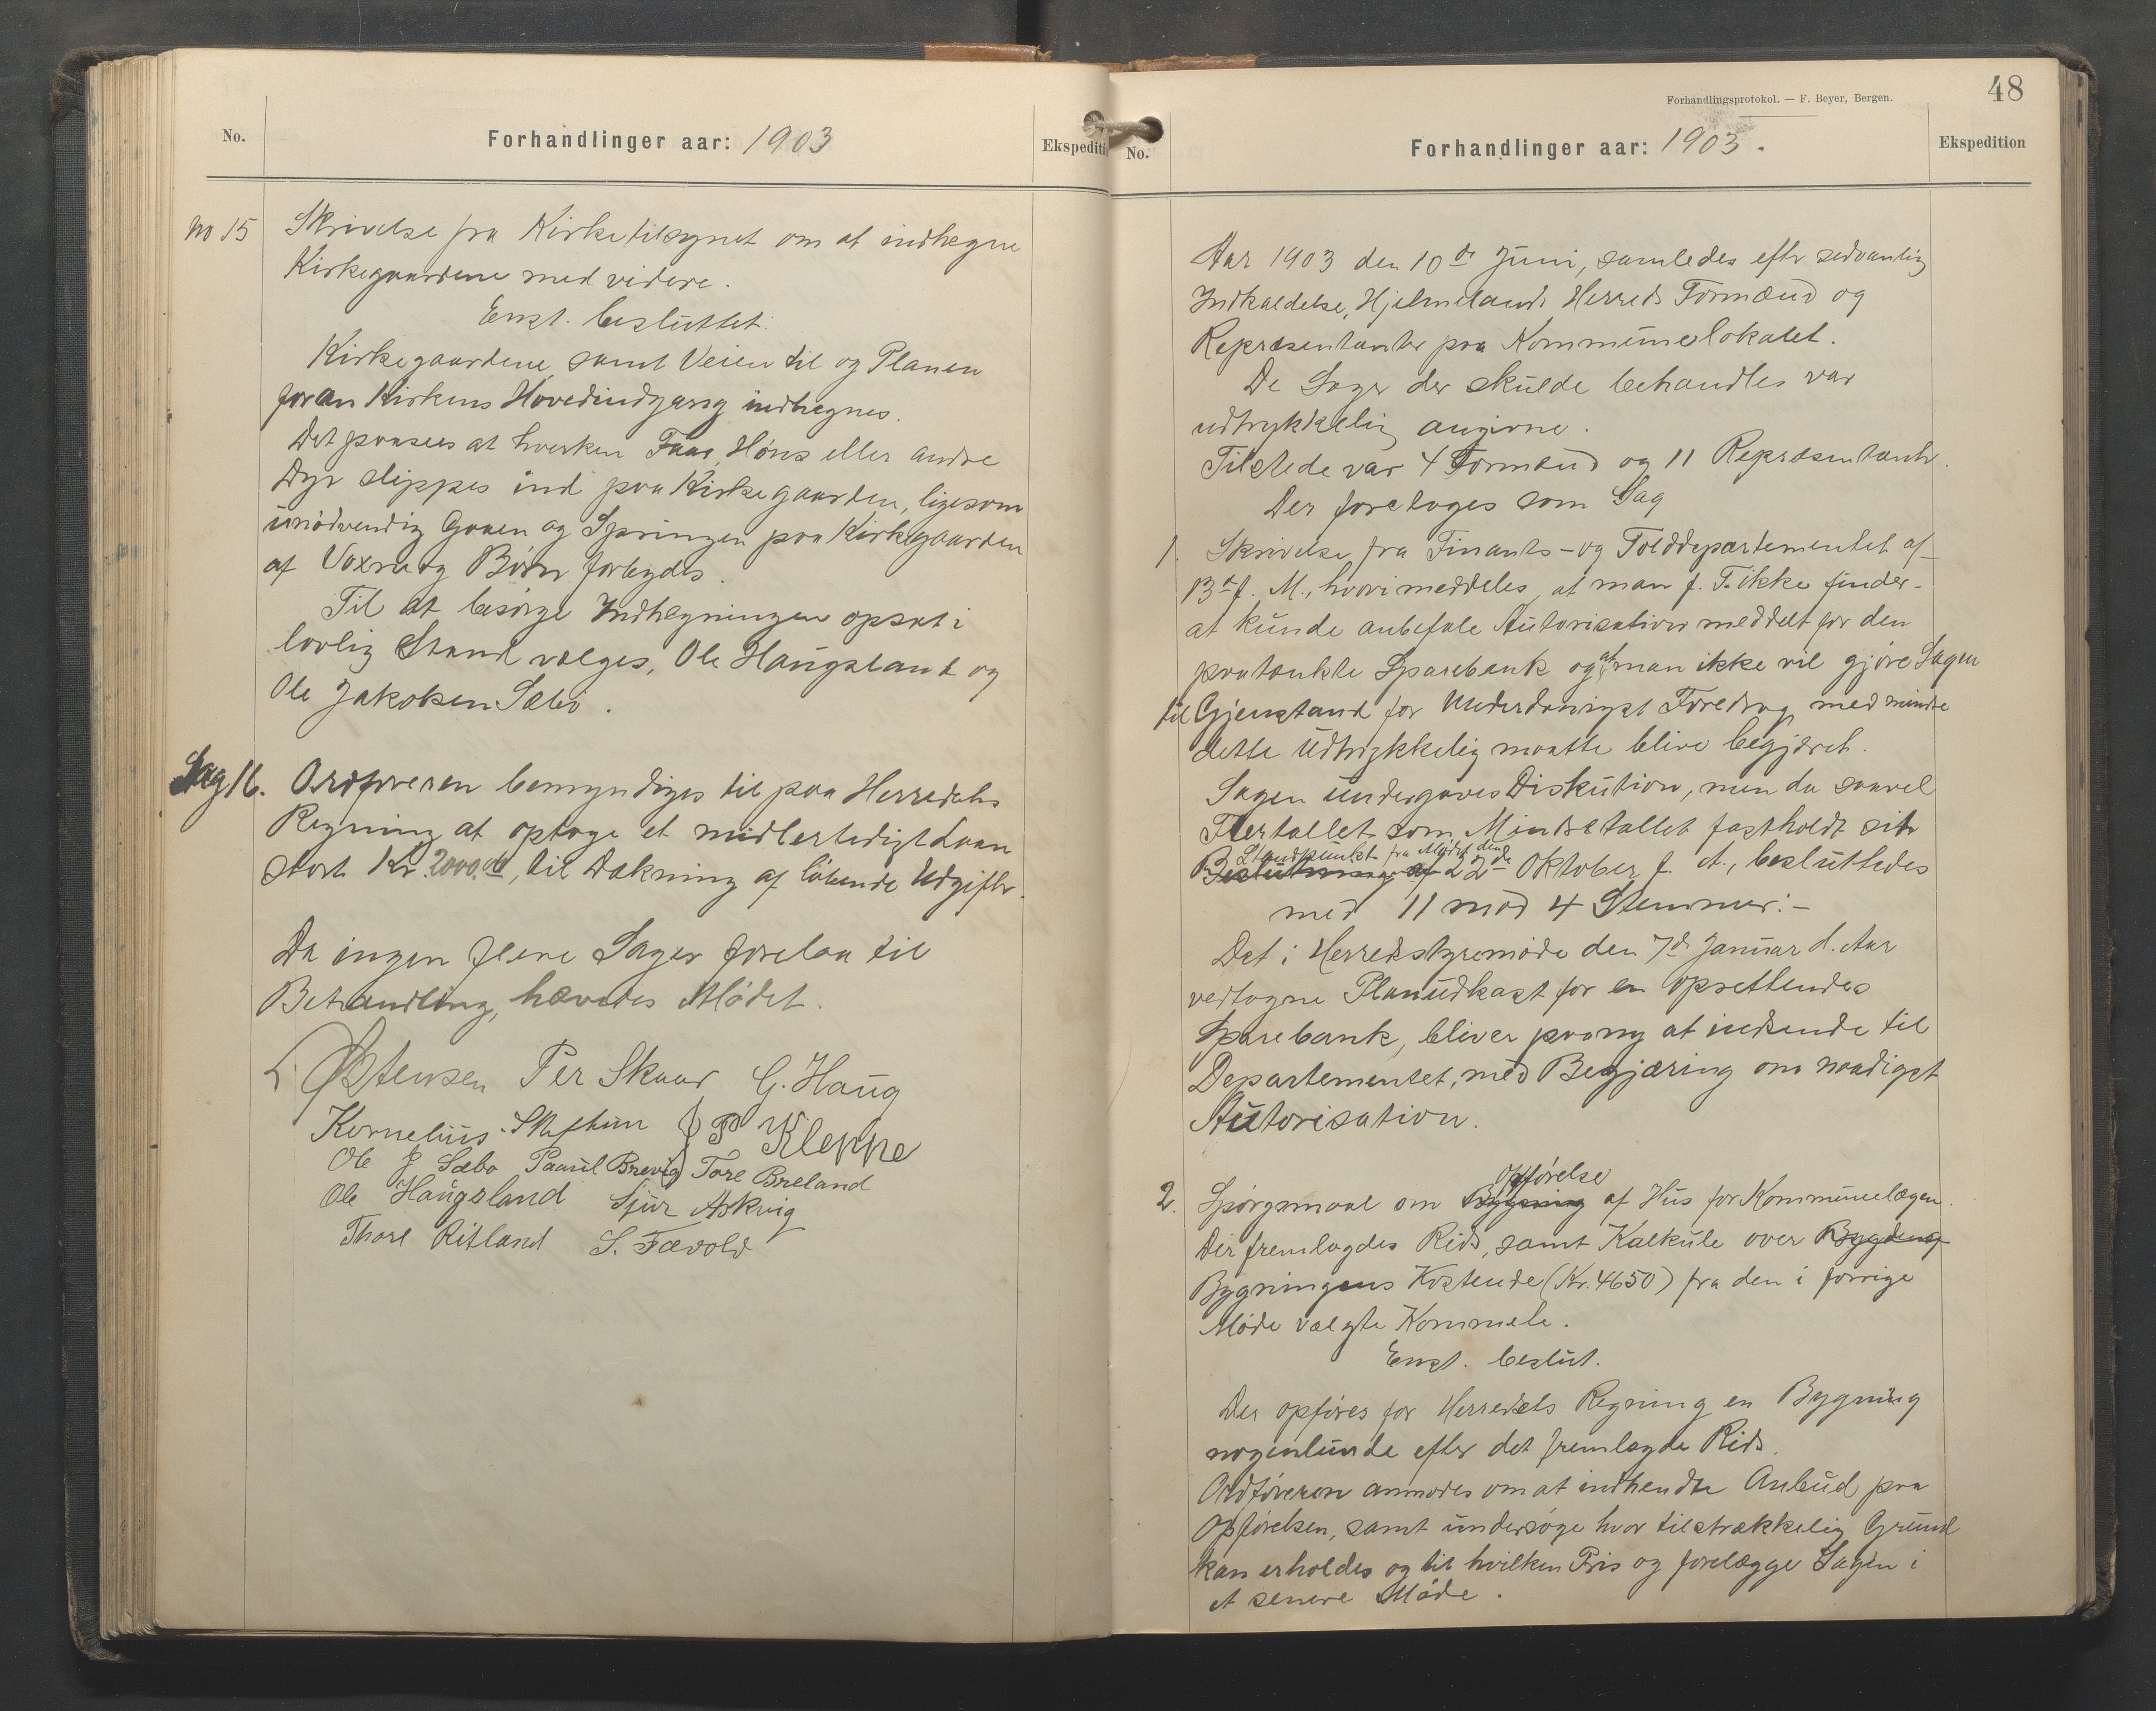 No.
Forhandlinger aar: 1903
Ekspediti
No 15 Skrivelse fra Kirketilsynet om at indhegne
Kirkegaardene med videre.
Enst. besluttet:
Kirkegaardene samt Veien til og Planen
foran Kirkens Hovedindgang indhegnes.
Det paasees at hverken Faar, Høns eller andre
Dyr slippes ind paa Kirkegaarden, ligesom
unødvendig Gaaen og Springen paa Kirkegaarden
af Voxne og Børn forbydes.
Til at besørge Indhegningen opsat i
lovlig Stand vælges, Ole Haugsland og
Ole Jakobsen Sæbø.
Sag 16. Ordføreren bemyndiges til paa Herredets
Regning at optage et midlertidigt Laan
stort Kr. 2000.00, til Dækning af løbende Udgifter.
Da ingen flere Sager forelaa til
Behandling, hævedes Mødet.
L. Østensen Per Skaar G. Haug
Kornelius Skiftun J P Kleppe
Ole J Sæbø Paaul Brevig Tore Breland
Ole Haugsland Sjur Askvig
Thore Ritland S. Fævold
48
Forhandlingsprotokol. — F. Beyer, Bergen.
No.
Forhandlinger aar: 1903.
Ekspedition
Aar 1903 den 10de Juni, samledes efter sedvanlig
Indkaldelse, Hjelmelands Herreds Formænd og
Repræsentanter paa Kommunelokalet.
De Sager der skulde behandles var
udtrykkelig angivne.
Tilstede var 4 Formænd og 11 Repræsentanter.
Der foretoges som Sag
1. Skrivelse fra Finants- og Tolddepartementet af
13de f. M., hvori meddeles, at man f. T. ikke finder
at kunde anbefale Autorisation meddelt for den
paatænkte Sparebank og at man ikke vil gjøre Sagen
til Gjenstand for Underdanigst Foredrag, med mindre
dette udtrykkelig maatte blive begjæret.
Sagen undergaves Diskution, men da saavel
Flertallet som Mindretallet fastholdt sit
Standpunkt fra Mødet den
Beslutning af 22de Oktober f. A., besluttedes
med 11 mod 4 Stemmer:-
Det i Herredsstyremøde den 7de Januar d. Aar
vedtagne Planudkast for en oprettendes
Sparebank, bliver paany at indsende til
Departementet, med Begjæring om naadigst
Autorisation.
Opførelse
2. Spørgsmaal om Bygning af Hus for Kommunelægen.
Der fremlagdes Rids, samt Kalkule over Bygdeng
Bygningens Kostende (Kr. 4650) fra den i forrige
Møde valgte Kommete.
Enst. beslut.
Der opføres for Herredets Regning en Bygning
nogenlunde efter det fremlagde Rids.
Ordføreren anmodes om at indhendte Anbud paa
Opførelsen, samt undersøge hvor tilstrækkelig Grund
kan erholdes og til hvilken Pris og forelægge Sagen i
et senere Møde.